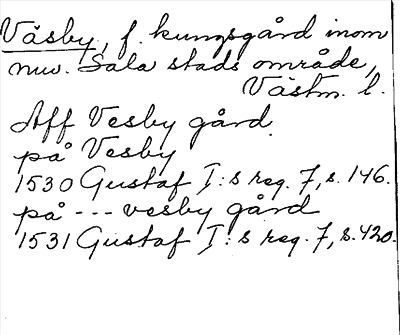 Väsby, f. kungsgård inom
nuv. Sala stads område,
Västm. l.
Aff Vesby gård
på Vesby
1530 Gustaf I:s reg. 7, s. 146.
på --- vesby gård
1531 Gustaf I:s reg. 7, s. 420.